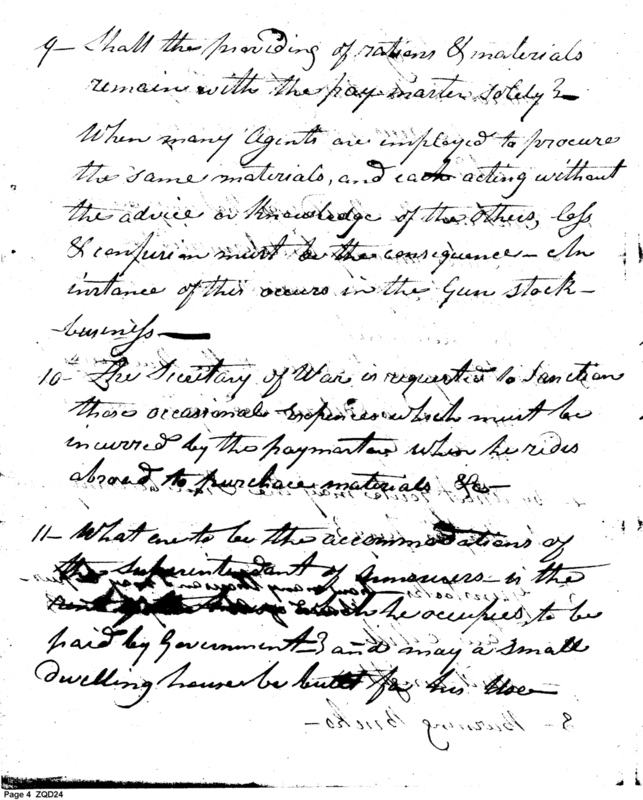 9 - Shall the providing of rations & materials
remain with the pay master solely?
When many Agents are employed to procure
the same materials, and each acting without
the advice or knowledge of the others, loss
& confusion must be the consequence - An
instance of this occurs in the Gun stock-
business -
10th - The Secretary of War is requested to sanction
those occasional expences which must be
incurred by the paymaster when he rides
abroad to purchase materials &c -
11 - What are to be the accommodations of
the superintendant of armourers - is the
he occupies, to be
paid by Government - ? and may a small
dwelling house be built for his Use -
8 - Burning Bricks -
Page 4 ZQD24